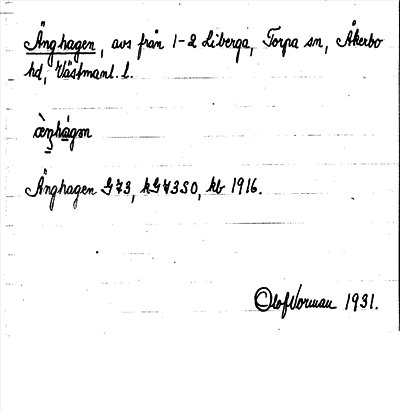 Änghagen, avs från 1-2 Liberga, Torpa sn, Åkerbo
hd, Västmanl. l.
Änghagen G73, kG73SO, kb 1916.
Olof Norman 1931.